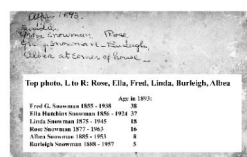 1893.
Linda.
Snowman Rose
Snowman - Burleigh,
Albea at corner of house
Top photo, L to R: Rose, Ella, Fred, Linda, Burleigh, Albea
Age in 1893:
Fred G. Snowman 1855 - 1938 38
Ella Hutchins Snowman 1856 - 1924 37
Linda Snowman 1875 - 1945 18
Rose Snowman 1877 - 1963 16
Albea Snowman 1885 - 1953 8
Burleigh Snowman 1888 - 1957 5